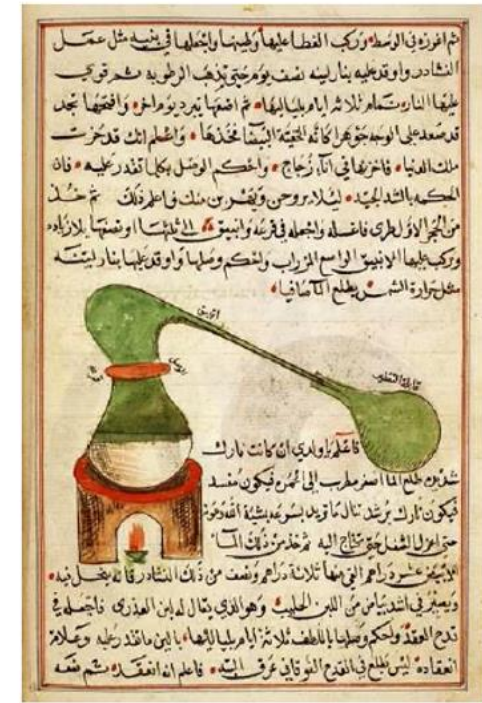 ثم اغوزه في الوسط وركب الغطا عليها وطينها واجعلها في مثل عمل
النشادر واوقد عليه بنار لينه نصف يوم حتى يذهب الرطوبه ثم قوي
عليها النار تمام ثلاثه ايام بلياليها ثم اضعها يبرد يوم اخر وافتحها تجد
قد صعد على الوجه جوهرا كانه البيضا فخذها واعلم انك قد حزت
ملك الدنيا فاخزنها في انا زجاج واحكم الوصل بكلما تقدر عليه فان
الحكمه بالشد الجيد ليلا يروحن ويفر من منك فاعلم ذلك ثم خذ
من الحجر الاول طري فاغسله واجعله في قرعه وانبيق ثلثها او نصفها بلا زياده
وركب عليها الانبيق الواسع المزراب واحكم وصلها واوقد عليها بنار لينه
مثل حرارة الشمس يطلع الما صافيا
انبيق
قابلة التقطير
فاعلم يا ولدي ان كانت نارك
شديده طلع الما اصفر الى الحمره فيكون مفسد
فيكون نارك برشد تنال ما تريد بمشية الله وعونه
حتى اعزل الثفل حتى تحتاج اليه ثم خذ من ذلك الما
الابيض عشره دراهم الق عليها ثلاثة دراهم ونصف من ذلك النشادر فانه ينحل فيه
ويصير في اشد بياض من اللبن الحليب وهو الذي يقال له لبن العذرى فاجعله في
قدح العقد واحكم وصلها باللطف ثلاثة ايام بلياليها بالين ما تقدر عليه وعلامة
انعقاده ليس يطلع في القدح الفوقاني عرق فاعلم انه انعقد ثم